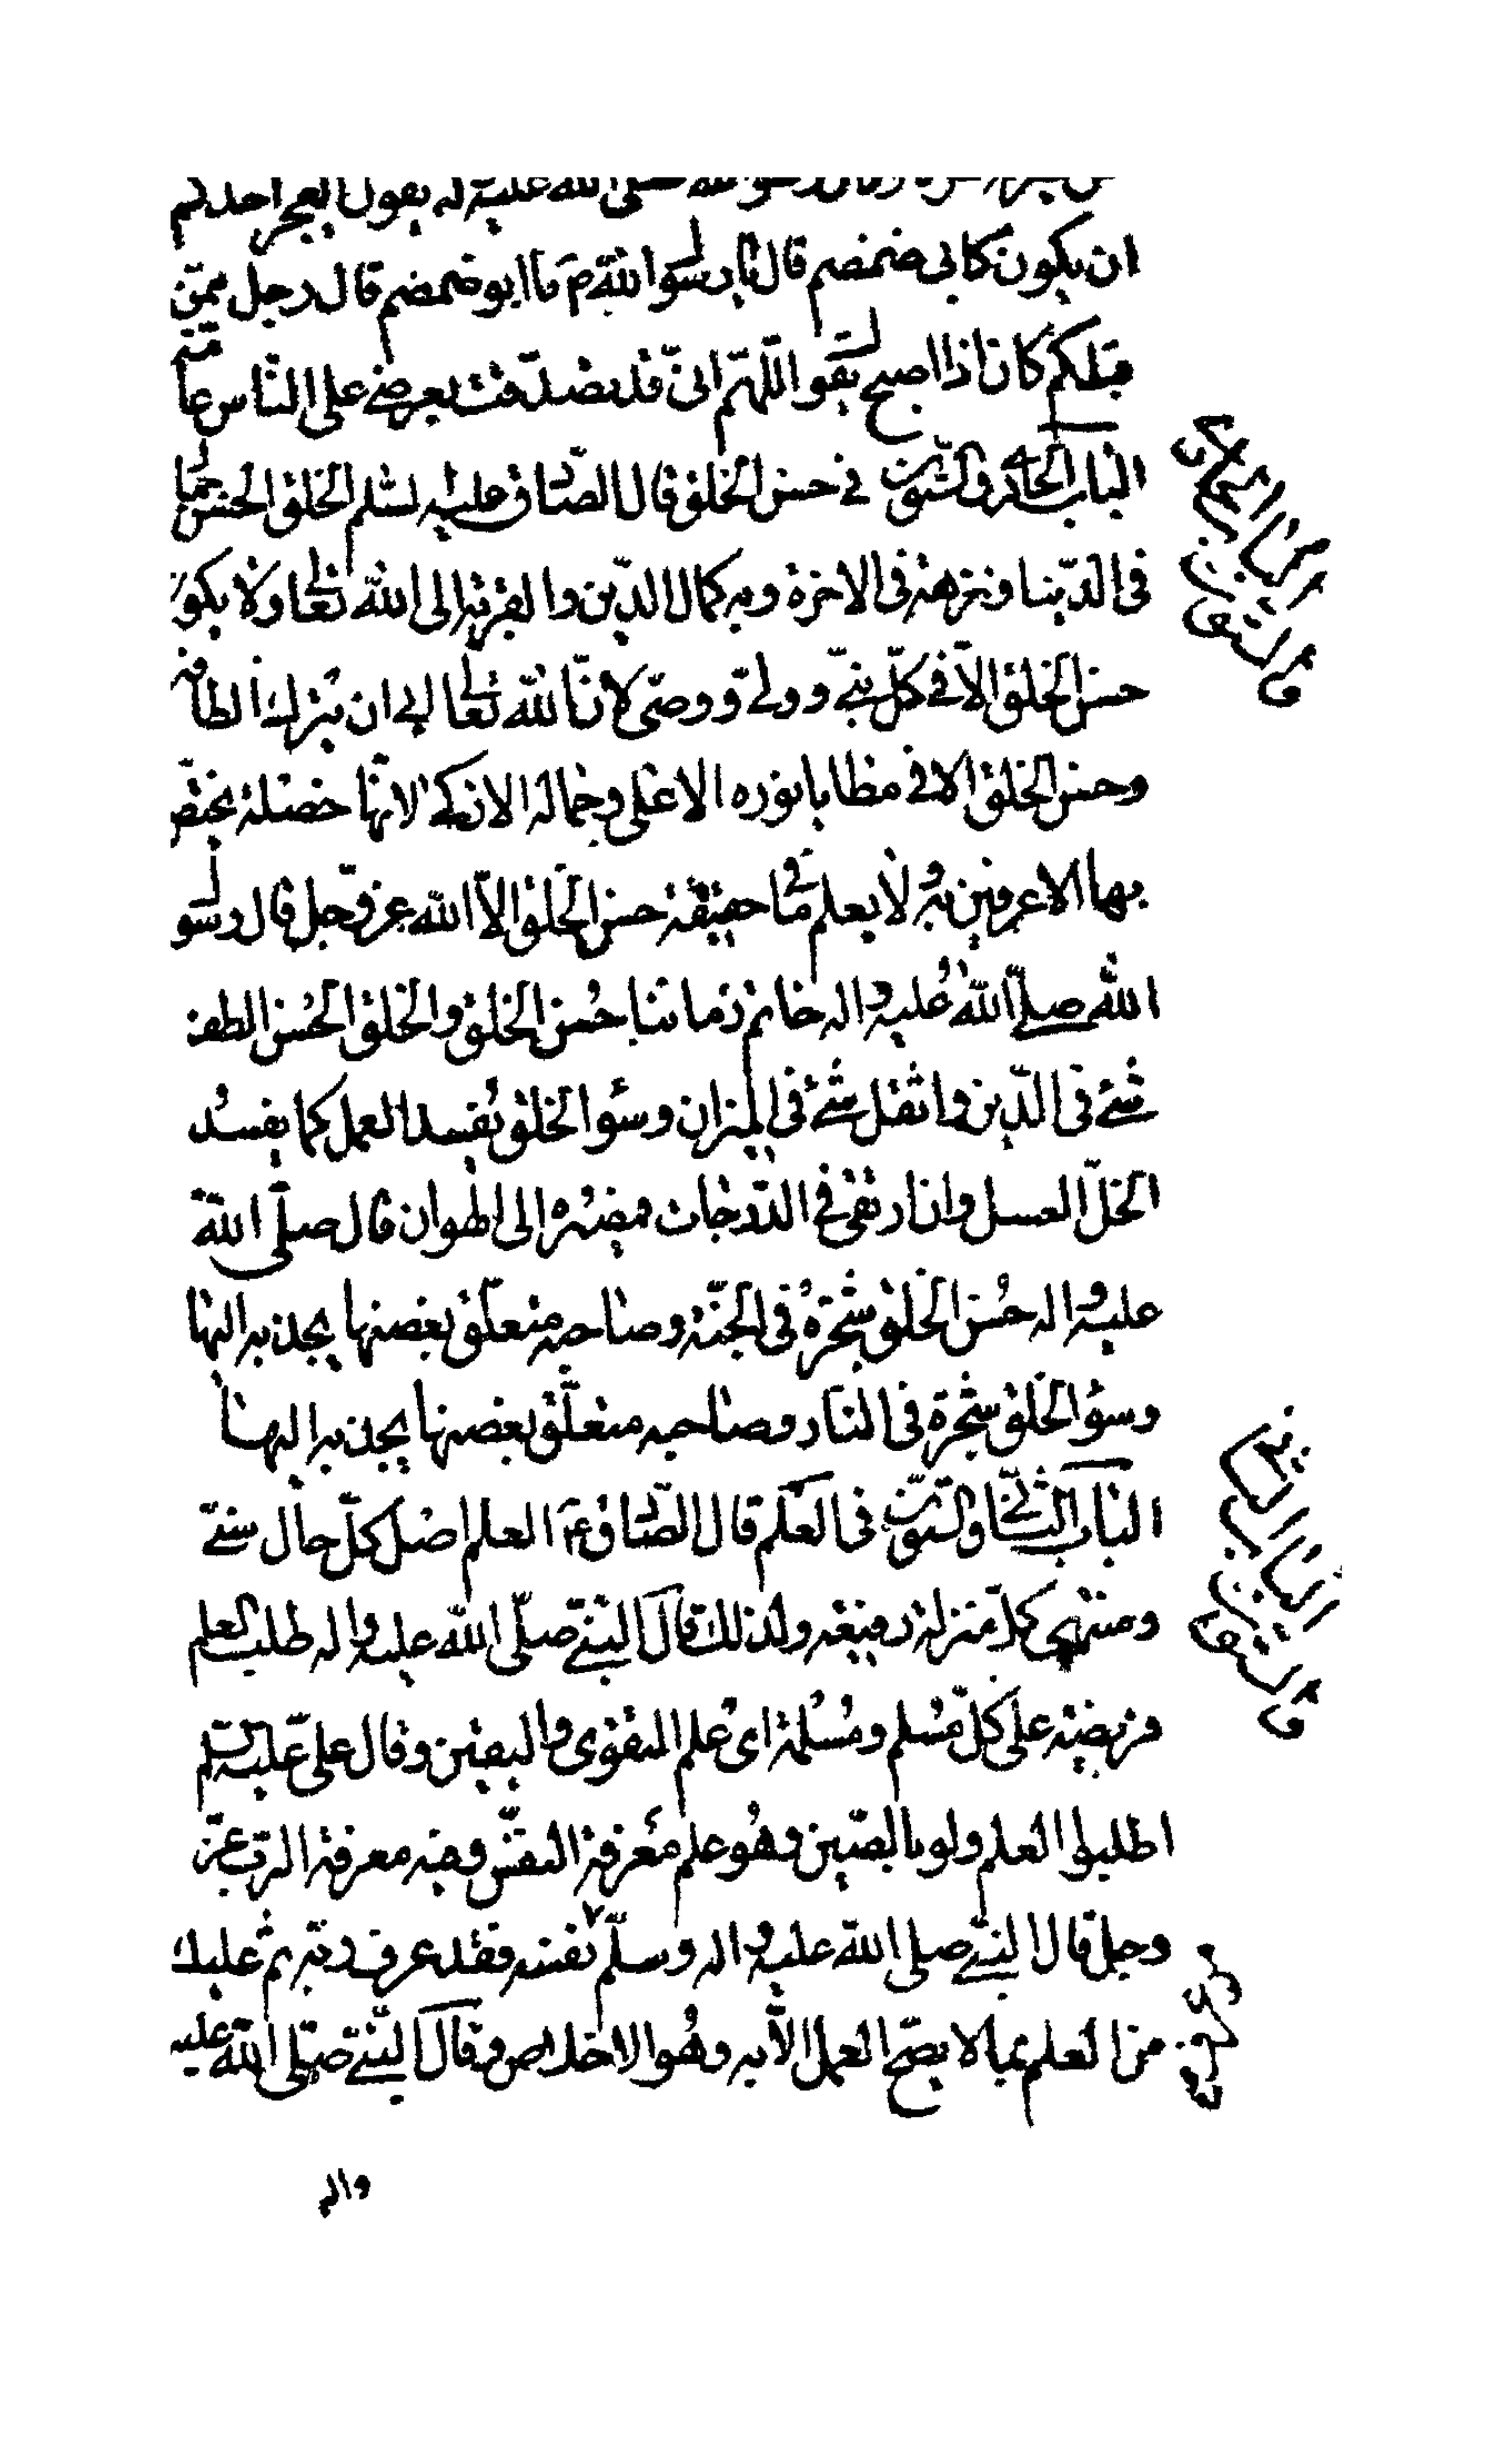 صلى الله عليه واله يقول ايعجز احدكم
ان يكون كابى ضمضم قال يا رسول الله ص ما ابو ضمضم قال رجل ممن
قبلكم كان اذا اصبح يقول اللهم انى قد تصدقت بعرضى على الناس عامة
الباب الحادى والستون فى حسن الخلق قال الصادق عليه السلم الخلق الحسن جمال
فى الدنيا ونزهة فى الاخرة وبه كمال الدين والقربة الى الله تعالى ولا يكون
حسن الخلق الا فى كل نبى وولى ووصى لان الله تعالى ابى ان يترك الطافه
وحسن الخلق الا فى مطايا نوره الاعلى وجماله الازكى لانها خصلة يختص
بها الاعرفين به ولا يعلم ما فى حقيقة حسن الخلق الا الله عز وجل قال رسول
الله صلى الله عليه واله خاتم زماننا حسن الخلق والخلق الحسن الطف
شئ فى الدين واثقل شئ فى الميزان وسؤ الخلق يفسد العمل كما يفسد
الخل العسل وان ارتقى فى الدرجات فمصيره الى الهوان قال صلى الله
عليه واله حسن الخلق شجرة فى الجنة وصاحبه متعلق بغصنها يجذبه اليها
وسؤ الخلق شجرة فى النار وصاحبه متعلق بغصنها يجذبه اليها
الباب الثانى والستون فى العلم قال الصادق ع العلم اصل كل حال سنى
ومنتهى كل منزلة رفيعة ولذلك قال النبى صلى الله عليه واله طلب العلم
فريضة على كل مسلم ومسلمة اى علم التقوى واليقين وقال على عليه السلم
اطلبوا العلم ولو بالصين وهو علم معرفة النفس وفيه معرفة الرب عز
وجل قال النبى صلى الله عليه واله وسلم نفسه فقد عرف ربه ثم عليك
من العلم بما لا يصح العمل الا به وهو الاخلاص وقال النبى صلى الله عليه
واله
الباب الحادى
والستون
الباب الثانى
والستون
من عرف